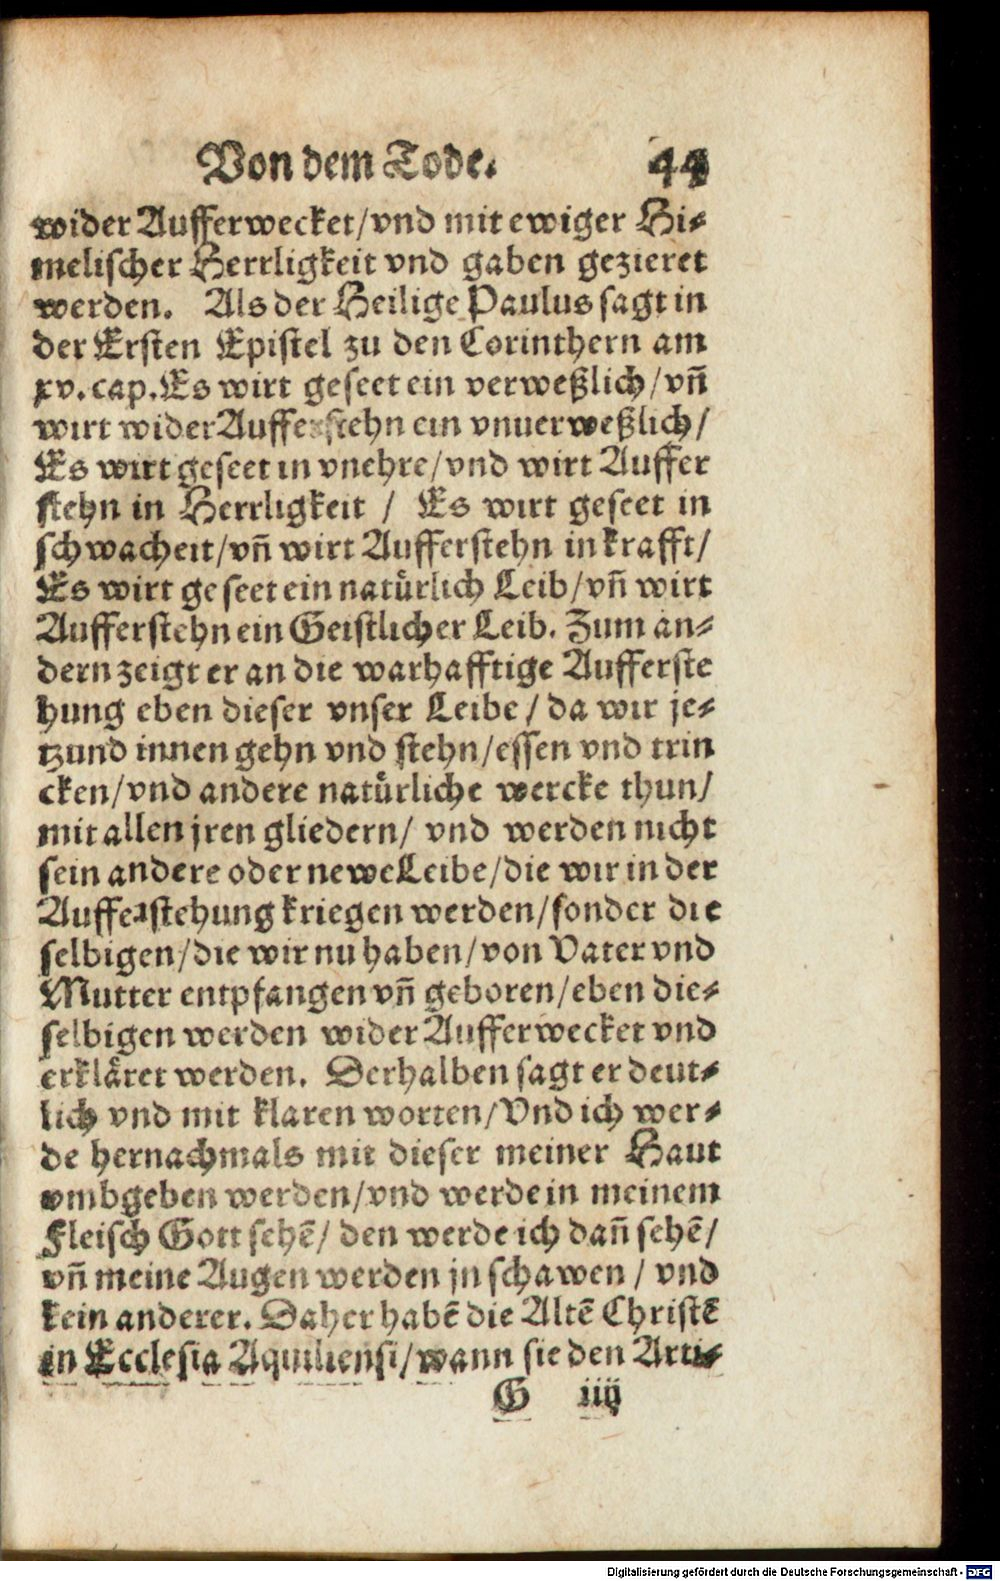 Von dem Tode. 44
wider Aufferwecket/vnd mit ewiger Hi-
melischer Herrligkeit vnd gaben gezieret
werden. Als der Heilige Paulus sagt in
der Ersten Epistel zu den Corinthern am
xv. cap. Es wirt geseet ein verweßlich/vñ
wirt wider Aufferstehn ein vnuerweßlich/
Es wirt geseet in vnehre/vnd wirt Auffer
stehn in Herrligkeit / Es wirt geseet in
schwacheit/vñ wirt Aufferstehn in krafft/
Es wirt geseet ein natürlich Leib/vñ wirt
Aufferstehn ein Geistlicher Leib. Zum an-
dern zeigt er an die warhafftige Aufferste
hung eben dieser vnser Leibe / da wir je-
tzund innen gehn vnd stehn/essen vnd trin
cken/vnd andere natürliche wercke thun/
mit allen jren gliedern/ vnd werden nicht
sein andere oder newe Leibe/die wir in der
Aufferstehung kriegen werden/sonder die
selbigen/die wir nu haben/von Vater vnd
Mutter entpfangen vñ geboren/eben die-
selbigen werden wider Aufferwecket vnd
erkläret werden. Derhalben sagt er deut-
lich vnd mit klaren worten/Vnd ich wer-
de hernachmals mit dieser meiner Haut
vmbgeben werden/vnd werde in meinem
Fleisch Gott sehẽ/ den werde ich dañ sehẽ/
vñ meine Augen werden jn schawen / vnd
kein anderer. Daher habẽ die Altẽ Christẽ
in Ecclesia Aquiliensi/wann sie den Arti-
G iiij
Digitalisierung gefördert durch die Deutsche Forschungsgemeinschaft - DFG